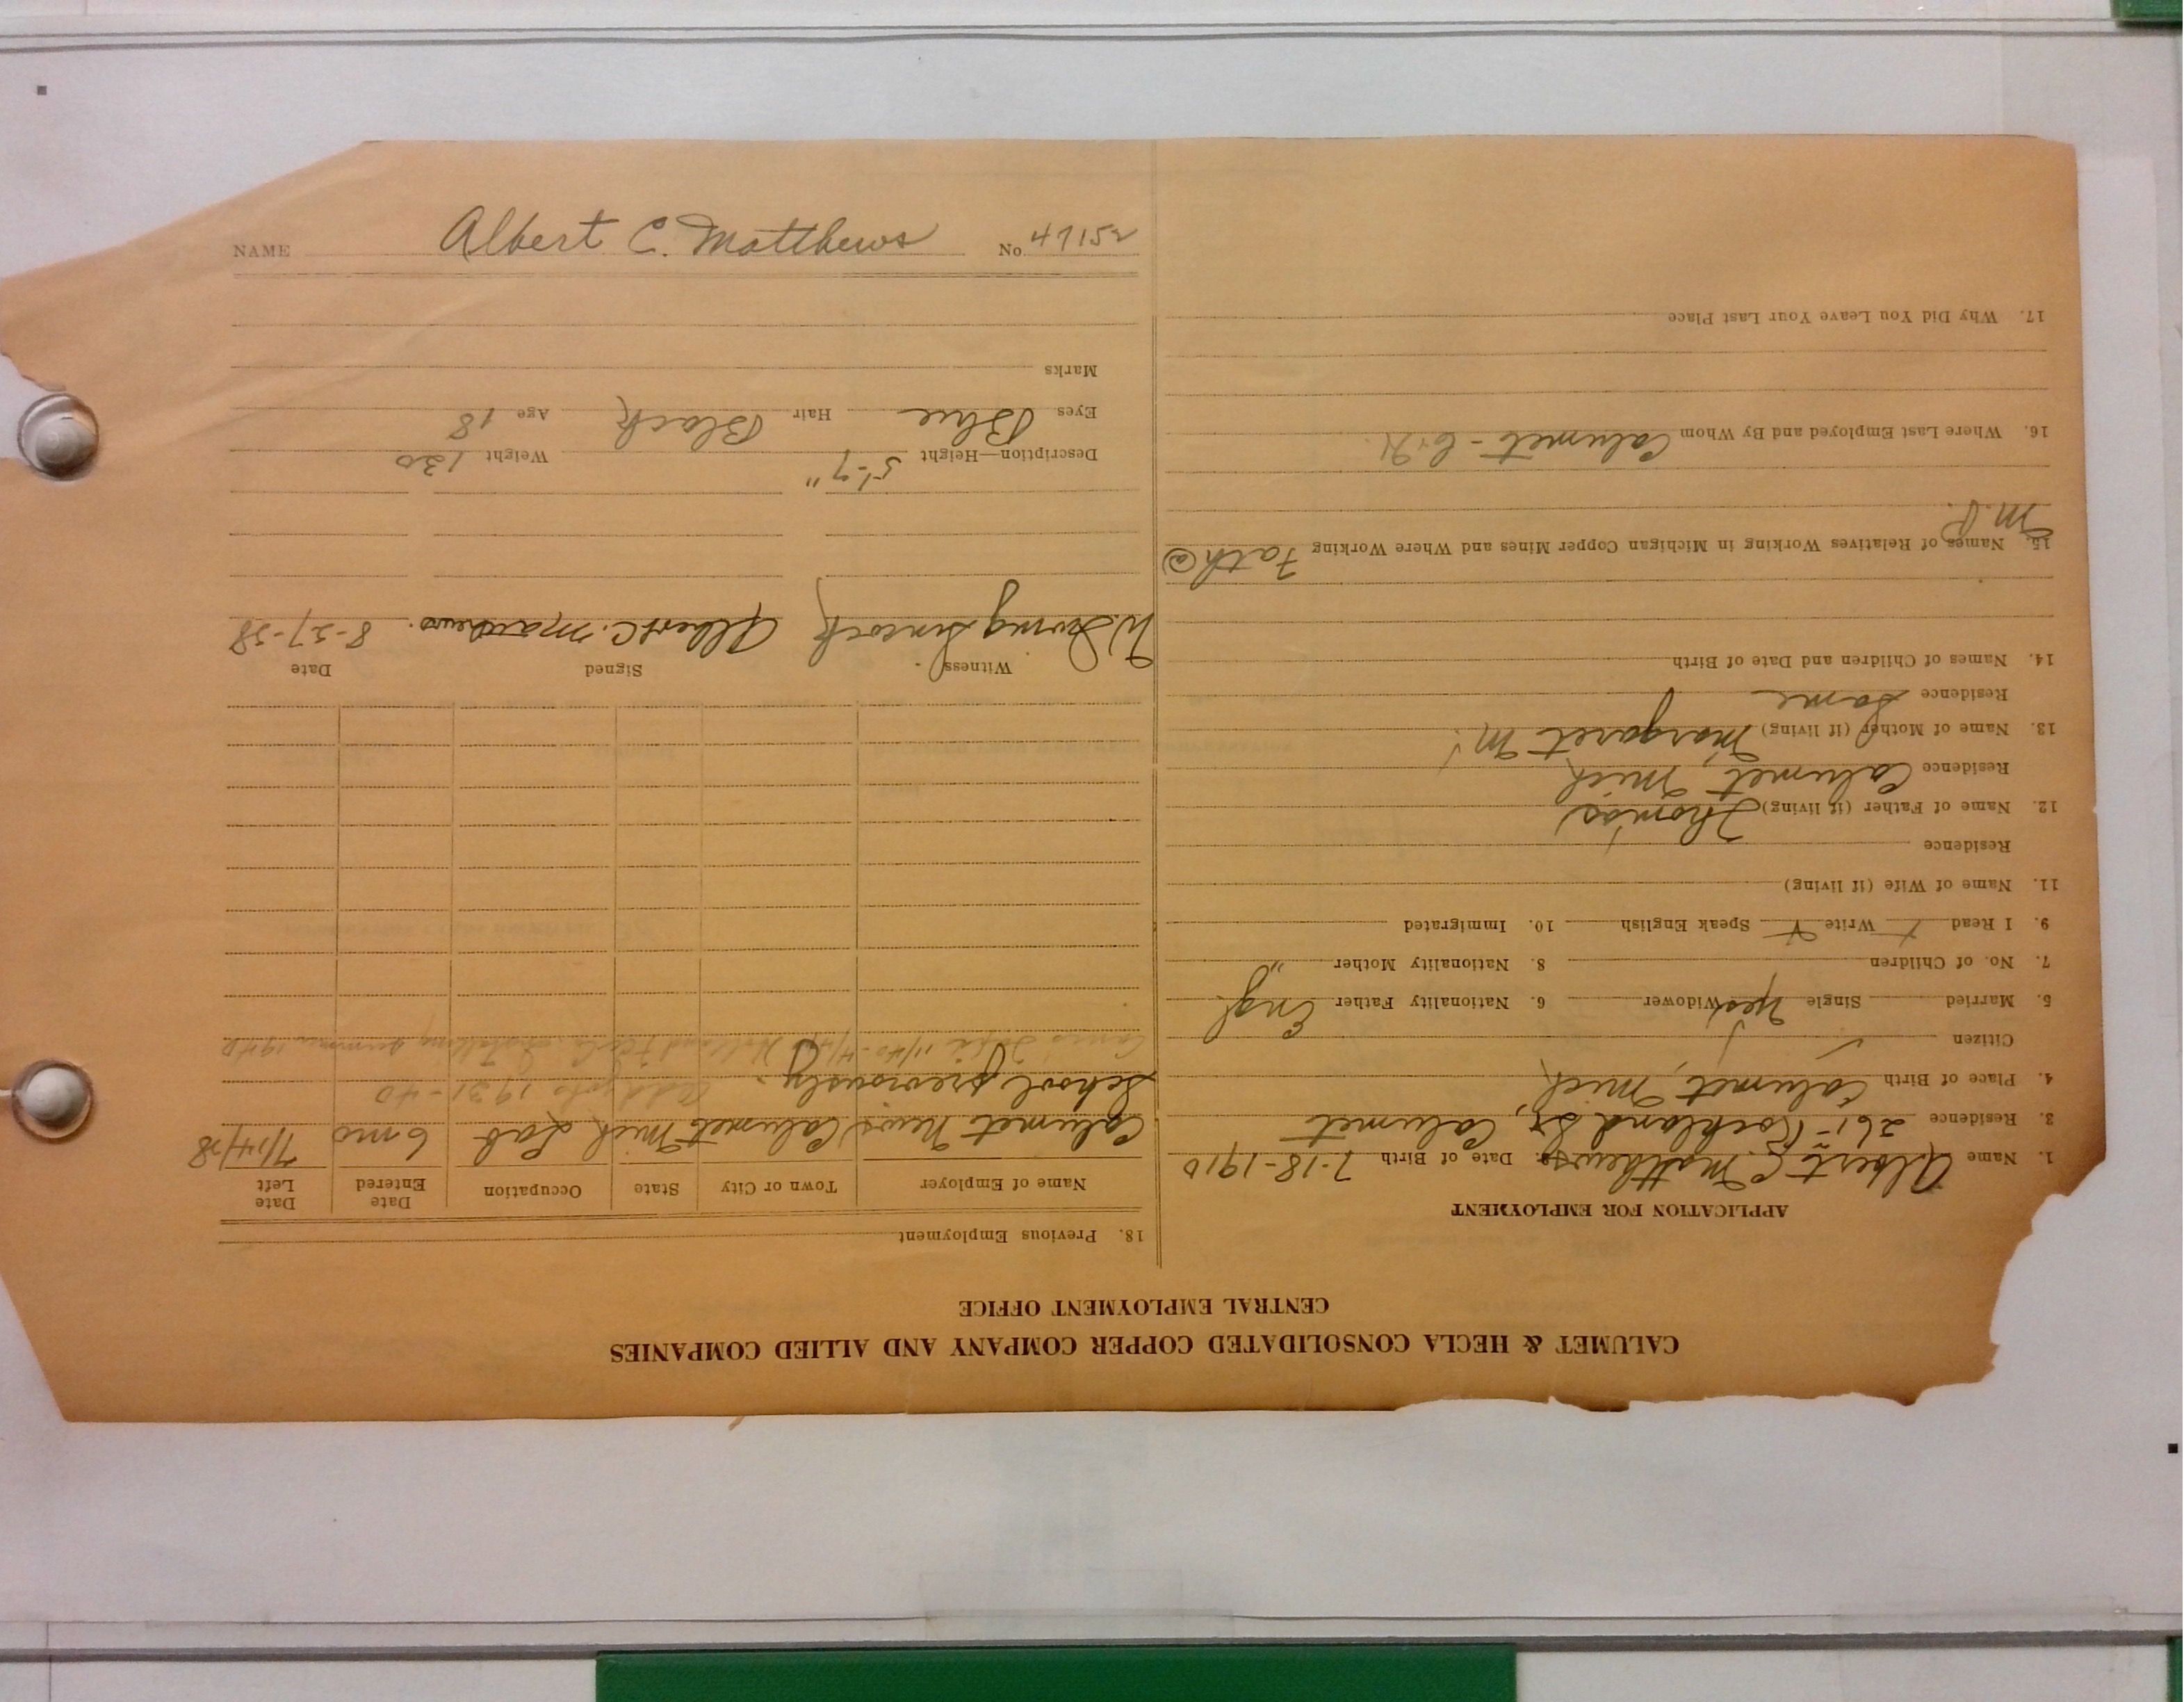 CALUMET & HECLA CONSOLIDATED COPPER COMPANY AND ALLIED COMPANIES
CENTRAL EMPLOYMENT OFFICE
APPLICATION FOR EMPLOYMENT
1. Name Albert C. Matthews 2. Date of Birth 7-18-1910
3. Residence 261- Rockland St, Calumet
4. Place of Birth Calumet, Mich
Citizen
5. Married Single yes Widower 6. Nationality Father Engl.
7. No. of Children 8. Nationality Mother "
9. I Read Write Speak English 10. Immigrated
11. Name of Wife (if living)
Residence
12. Name of Father (if living) Thomas
Residence Calumet, Mich
13. Name of Mother (if living) Margaret M.
Residence Same
14. Names of Children and Date of Birth
15. Names of Relatives Working in Michigan Copper Mines and Where Working Fath @
M.P.
16. Where Last Employed and By Whom Calumet - C+H.
17. Why Did You Leave Your Last Place
18. Previous Employment
Name of Employer Town or City State Occupation Date Entered Date Left
Calumet News Calumet Mich Lab 6 mo 7/14/28
School previously. Odd jobs 1931-40
11/40-4/41 Holland summer 1940
Witness Signed Date
W. Irving Sincock Albert C. Matthews. 8-27-28
Description—Height 5'-7" Weight 130
Eyes Blue Hair Black Age 18
Marks
NAME Albert C. Matthews No. 47152